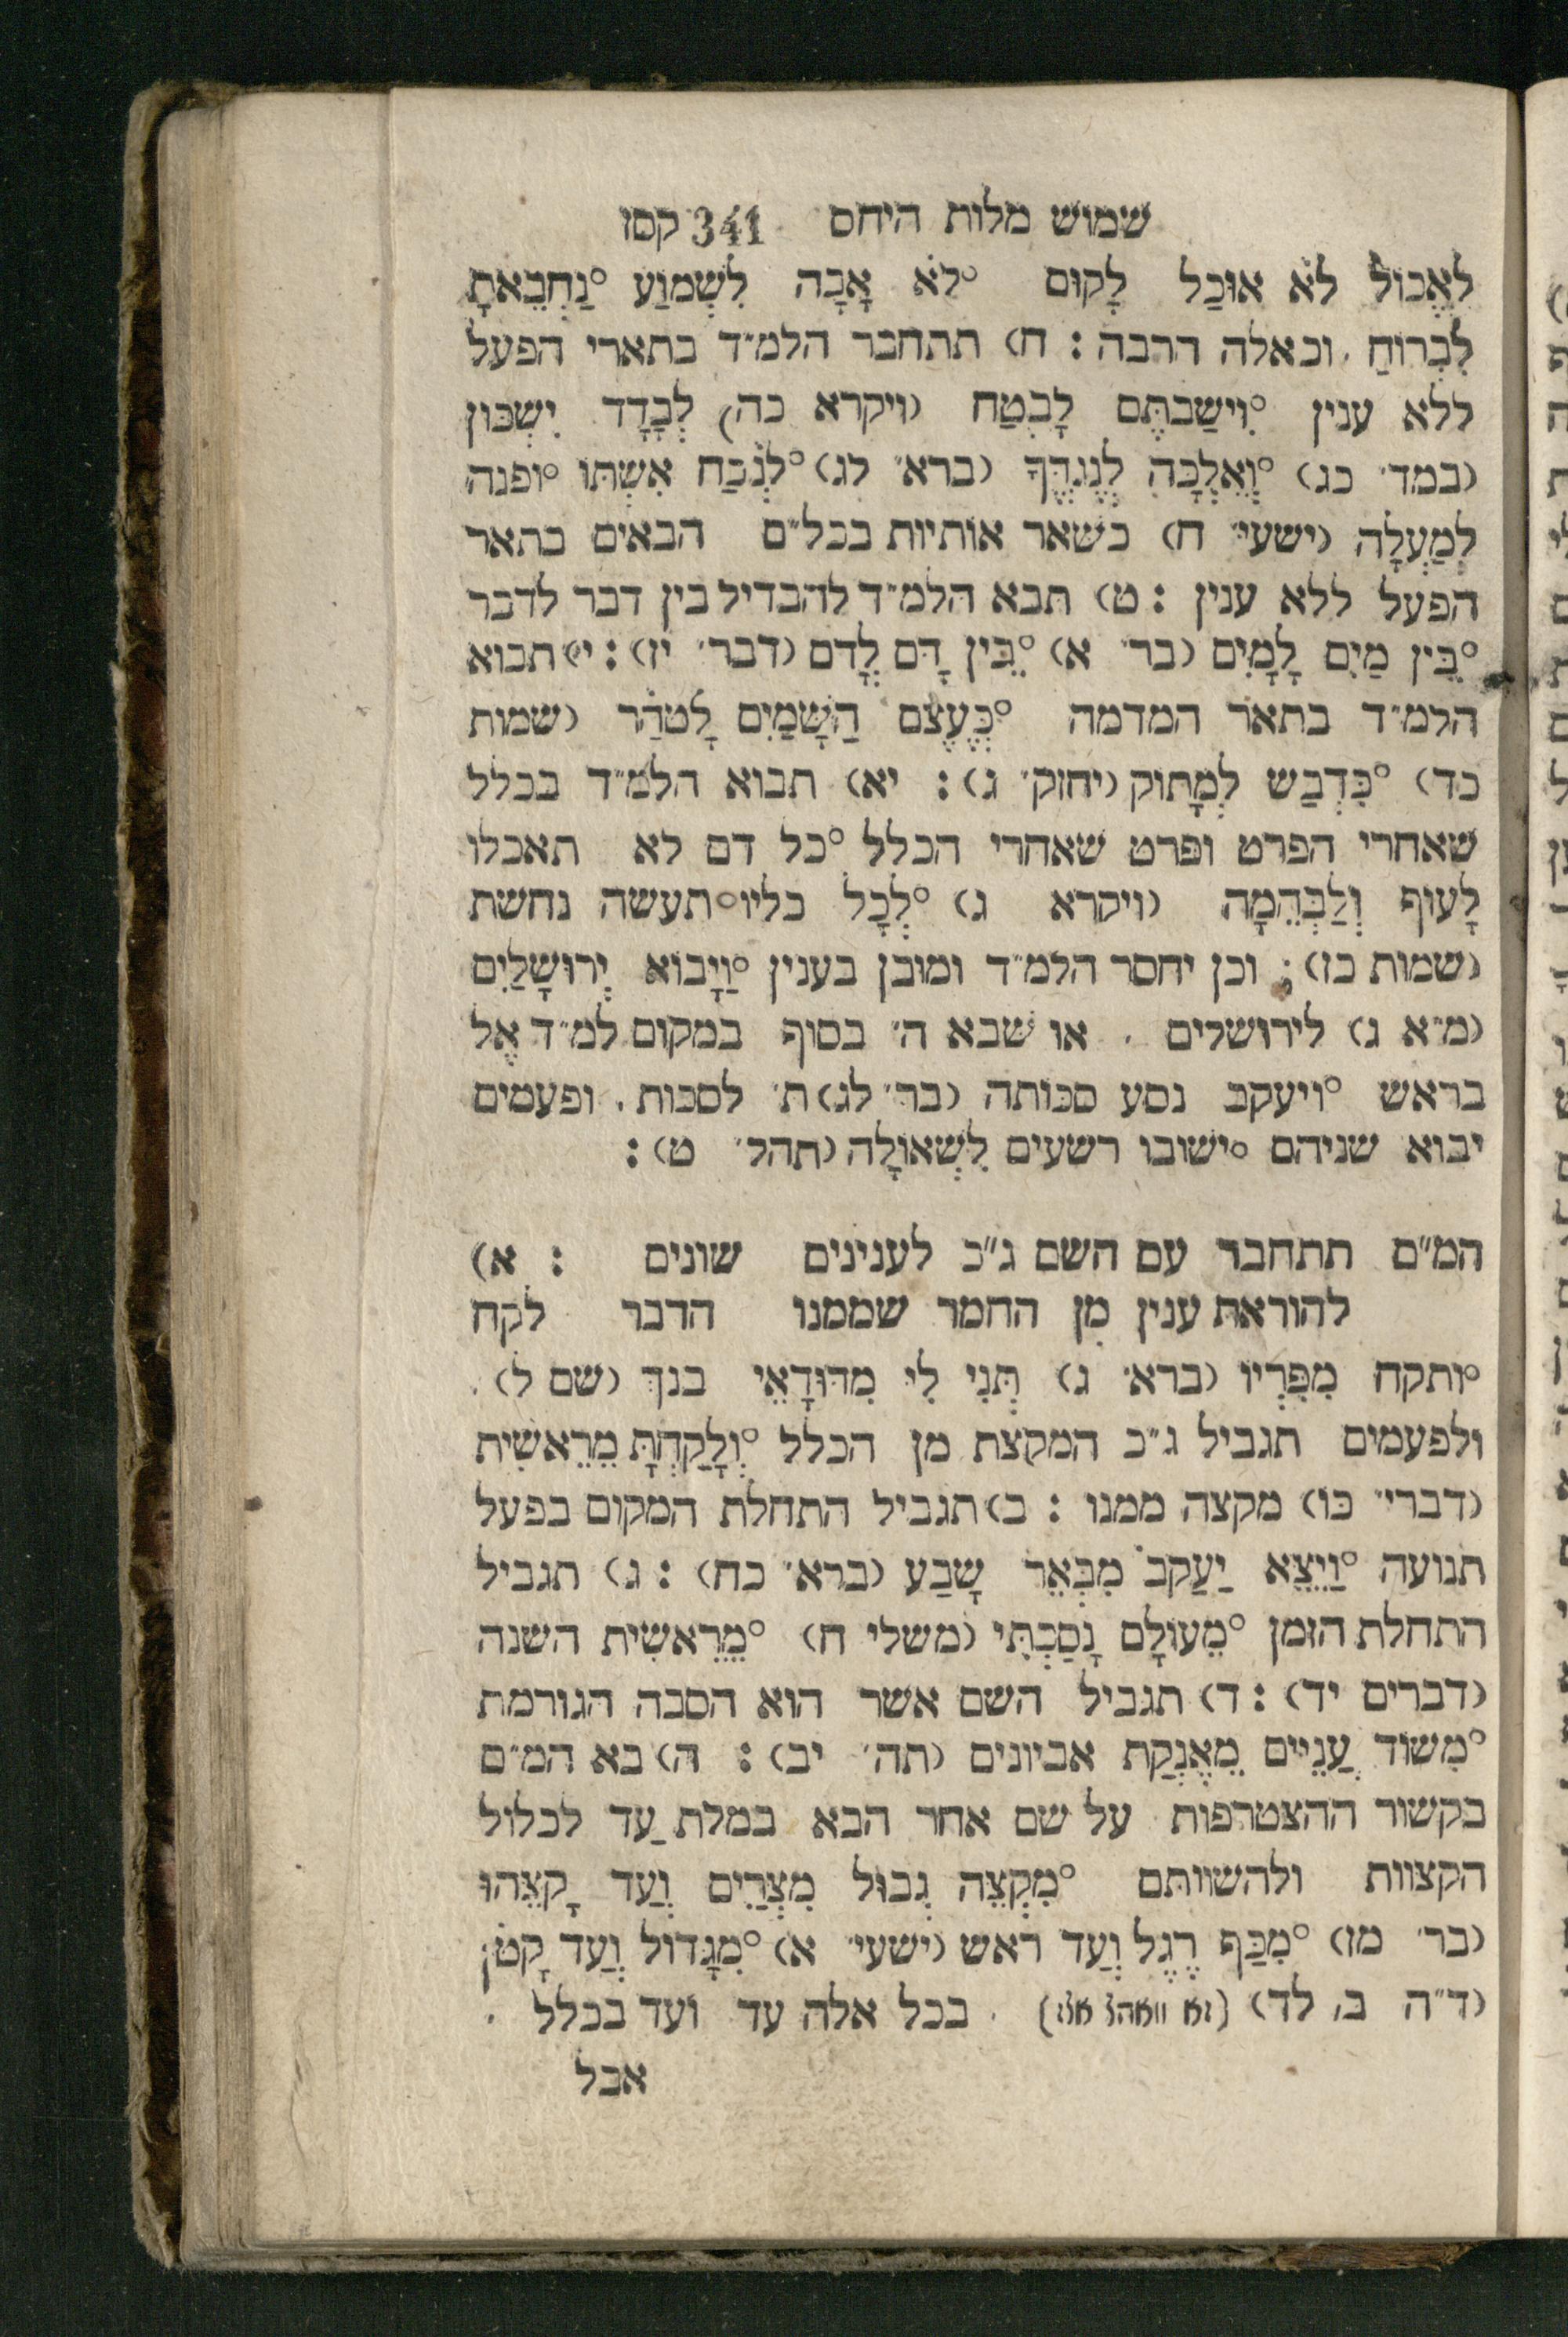 שמוש מלות היחס 341 קסו
לֶאֱכוֹל לֹא אוּכַל לָקוּם °לֹא אָבָה לִשְׁמוֹעַ °נַחְבֵּאתָ
לִבְרוֹחַ, וכאלה הרבה : ח) תתחבר הלמ״ד בתארי הפעל
ללא ענין °וִישַׁבְתֶּם לָבֶטַח (ויקרא כה) לְבָדָד יִשְׁכּוֹן
(במד׳ כג) °וְאֵלְכָה לְנֶגְדֶּךָ (ברא׳ לג) °לְנֹכַח אִשְׁתּוֹ °ופנה
לְמַעְלָה (ישעי׳ ח) כשאר אותיות בכל״ם הבאים בתאר
הפעל ללא ענין : ט) תבא הלמ״ד להבדיל בין דבר לדבר
°בֵּין מַיִם לָמָיִם (בר׳ א) °בֵּין דָּם לְדָם (דבר׳ יז) : י) תבוא
הלמ״ד בתאר המדמה °כְּעֶצֶם הַשָּׁמַיִם לָטֹהַר (שמות
כד) °כִּדְבַשׁ לְמָתוֹק (יחזק׳ ג) : יא) תבוא הלמ״ד בכלל
שאחרי הפרט ופרט שאחרי הכלל °כל דם לא תאכלו
לָעוֹף וְלַבְּהֵמָה (ויקרא ג) °לְכָל כליו °תעשה נחשת
(שמות כז) ; וכן יחסר הלמ״ד ומובן בענין °וַיָבוֹא יְרוּשָׁלַיִם
(מ״א ג) לירושלים . או שבא ה׳ בסוף במקום למ״ד אֶל
בראש °ויעקב נסע סכותה (בר׳ לג) ת׳ לסכות . ופעמים
יבוא שניהם °ישובו רשעים לִשְׁאוֹלָה (תהל׳ ט) :
המ״ם תתחבר עם השם ג״כ לענינים שונים : א)
להוראת ענין מִן החמר שממנו הדבר לקח
°ותקח מִפִּרְיוֹ (ברא׳ ג) תְּנִי לִי מִדּוּדָאֵי בנך (שם ל) .
ולפעמים תגביל ג״כ המקצת מן הכלל °וְלָקַחְתָּ מֵרֵאשִׁית
(דברי׳ כו) מקצה ממנו : ב) תגביל התחלת המקום בפעל
תנועה °וַיֵּצֵא יַעֲקֹב מִבְּאֵר שָׁבַע (ברא׳ כח) : ג) תגביל
התחלת הזמן °מֵעוֹלָם נִסַּכְתִּי (משלי ח) °מֵרֵאשִׁית השנה
(דברים יד) : ד) תגביל השם אשר הוא הסבה הגורמת
°מִשּׁוֹד עֲנִיִּים מֵאֶנְקַת אביונים (תה׳ יב) : ה) בא המ״ם
בקשור ההצטרפות על שם אחר הבא במלת עַד לכלול
הקצוות ולהשוותם °מִקְצֵה גְבוּל מִצְרַיִם וְעַד קָצֵהוּ
(בר׳ מז) °מִכַּף רֶגֶל וְעַד ראש (ישעי׳ א) °מִגָּדוֹל וְעַד קָטֹן
(ד״ה ב, לד) . בכל אלה עד ועד בכלל .
אבל